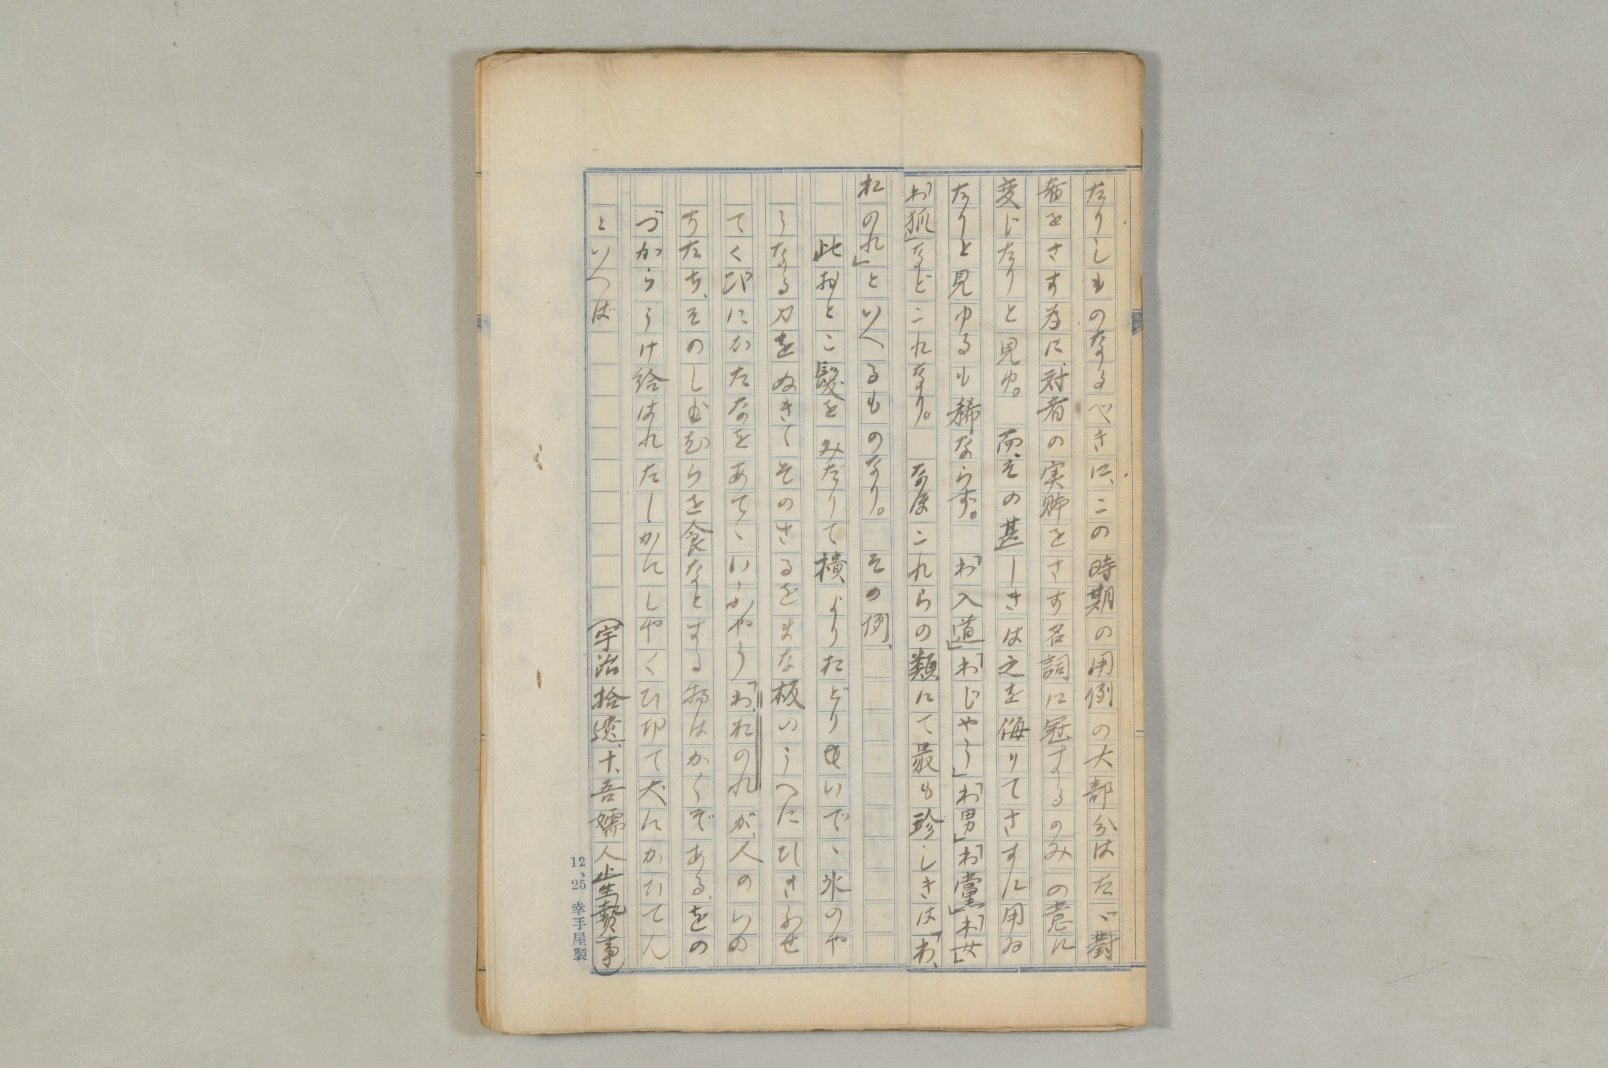 たりしものなるべきに、この時期の用例の大部分はたゞ對
者をさす為に、対者の実際をさす名詞に冠するのみの意に
変じたりと見ゆ。而、その甚しきは之を侮りてさすに用ゐ
たりと見ゆるも稀ならず。「わ入道」「わじやう」「わ男」「わ黨」「わ女」
「わ狐」などこれなり。なほこれらの類にて最も珍しきは「わ、
おのれ」といへるものなり。その例、
此おとこ髪をみだりて横よりおどりいでゝ氷のや
うなる刀をぬきてそのさるをまな板のうへにひきふせ
てくびにかたなをあてゝいかやう「わ、おのれが、人のいの
ちたち、そのしゝむらを食などする物はかくぞある、をの
づからうけ給はれたしかにしやくひ切て犬にかひてん
といへば
(宇治拾遺、十、吾嬬人止生贄事)
12、25 幸手屋製